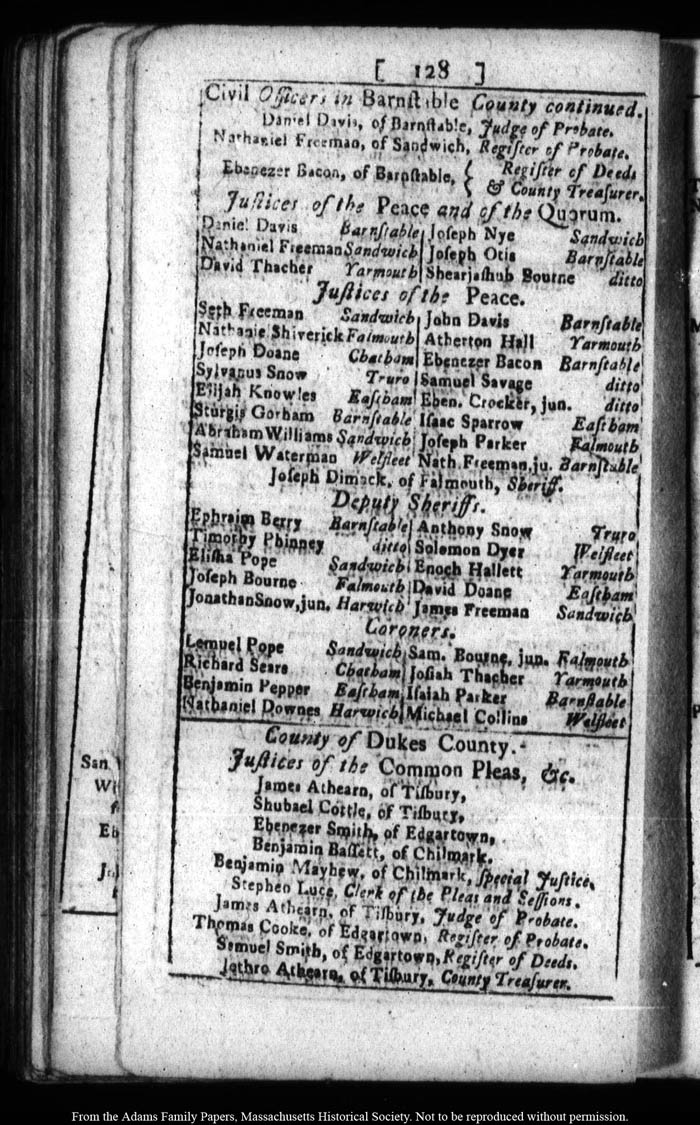 [ 128 ]
Civil Officers in Barnſtable County continued.
Daniel Davis, of Barnſtable, Judge of Probate.
Nathaniel Freeman, of Sandwich, Regiſter of Probate.
Ebenezer Bacon, of Barnſtable, { Regiſter of Deeds
& County Treaſurer.
Juſtices of the Peace and of the Quorum.
Daniel Davis Barnſtable | Joſeph Nye Sandwich
Nathaniel Freeman Sandwich | Joſeph Otis Barnſtable
David Thacher Yarmouth | Shearjaſhub Bourne ditto
Juſtices of the Peace.
Seth Freeman Sandwich | John Davis Barnſtable
Nathanie Shiverick Falmouth | Atherton Hall Yarmouth
Joſeph Doane Chatham | Ebenezer Bacon Barnſtable
Sylvanus Snow Truro | Samuel Savage ditto
Elijah Knowles Eaſtham | Eben. Crocker, jun. ditto
Sturgis Gorham Barnſtable | Iſaac Sparrow Eaſtham
Abraham Williams Sandwich | Joſeph Parker Falmouth
Samuel Waterman Welfleet | Nath. Freeman, ju. Barnſtable
Joſeph Dimack, of Falmouth, Sheriff.
Deputy Sheriffs.
Ephraim Berry Barnſtable | Anthony Snow Truro
Timothy Phinney ditto | Solomon Dyer Welfleet
Eliſha Pope Sandwich | Enoch Hallett Yarmouth
Joſeph Bourne Falmouth | David Doane Eaſtham
Jonathan Snow, jun. Harwich | James Freeman Sandwich
Coroners.
Lemuel Pope Sandwich | Sam. Bourne, jun. Falmouth
Richard Sears Chatham | Joſiah Thacher Yarmouth
Benjamin Pepper Eaſtham | Iſaiah Parker Barnſtable
Nathaniel Downes Harwich | Michael Collins Welfleet
County of Dukes County.
Juſtices of the Common Pleas, &c.
James Athearn, of Tiſbury,
Shubael Cottle, of Tiſbury,
Ebenezer Smith, of Edgartown,
Benjamin Baſſett, of Chilmark.
Benjamin Mayhew, of Chilmark, ſpecial Juſtice.
Stephen Luce, Clerk of the Pleas and Seſſions.
James Athearn, of Tiſbury, Judge of Probate.
Thomas Cooke, of Edgartown, Regiſter of Probate.
Samuel Smith, of Edgartown, Regiſter of Deeds.
Jethro Athearn, of Tiſbury, County Treaſurer.
San
Eb
From the Adams Family Papers, Massachusetts Historical Society. Not to be reproduced without permission.